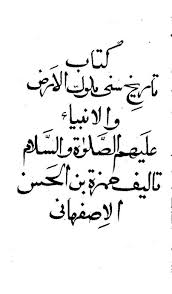 كتاب
تاريخ سنى ملوك الارض
والانبياء
عليهم الصلوة والسلام
تاليف حمزة بن الحسن
الاصفهانى